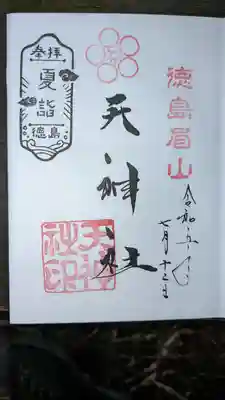 徳島眉山
令和五年
七月十二日
天神社
天神
社印
奉拝
夏詣
徳島